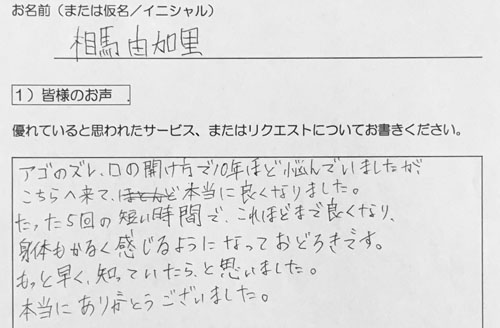 お名前（または仮名／イニシャル）
相馬由加里
1）皆様のお声
優れていると思われたサービス、またはリクエストについてお書きください。
アゴのズレ、口の開け方で10年ほど悩んでいましたが、
こちらへ来て、ほとんど本当に良くなりました。
たった5回の短い時間で、これほどまで良くなり、
身体もかるく感じるようになっておどろきです。
もっと早く、知っていたら、と思いました。
本当にありがとうございました。